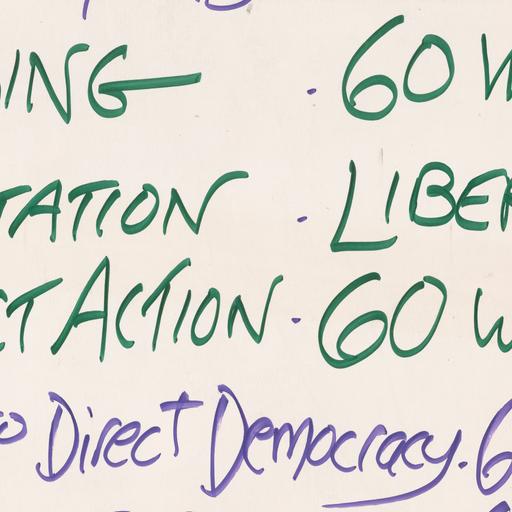 ING · 60 W
TATION · LIBER
CT ACTION · 60 W
o Direct Democracy. 6